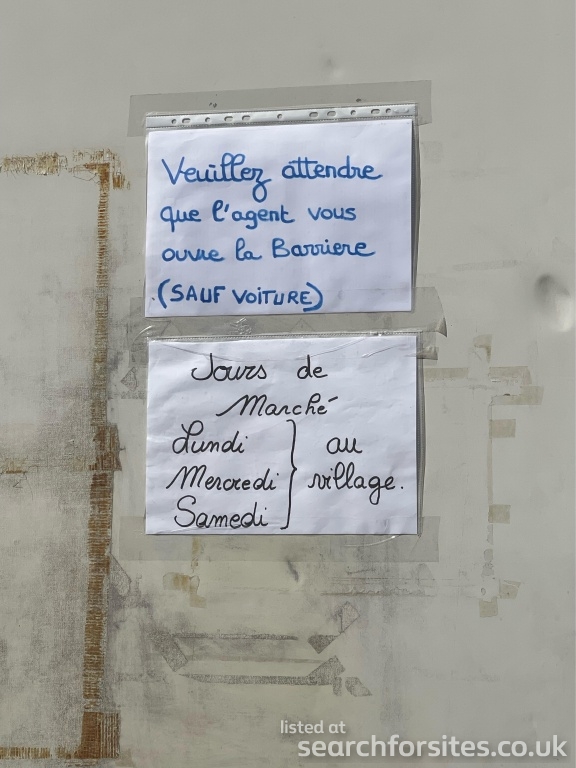 Veuillez attendre
que l'agent vous
ouvre la Barriere
(SAUF VOITURE)
Jours de
Marché
Lundi
Mercredi
Samedi
} au
village.
listed at
searchforsites.co.uk